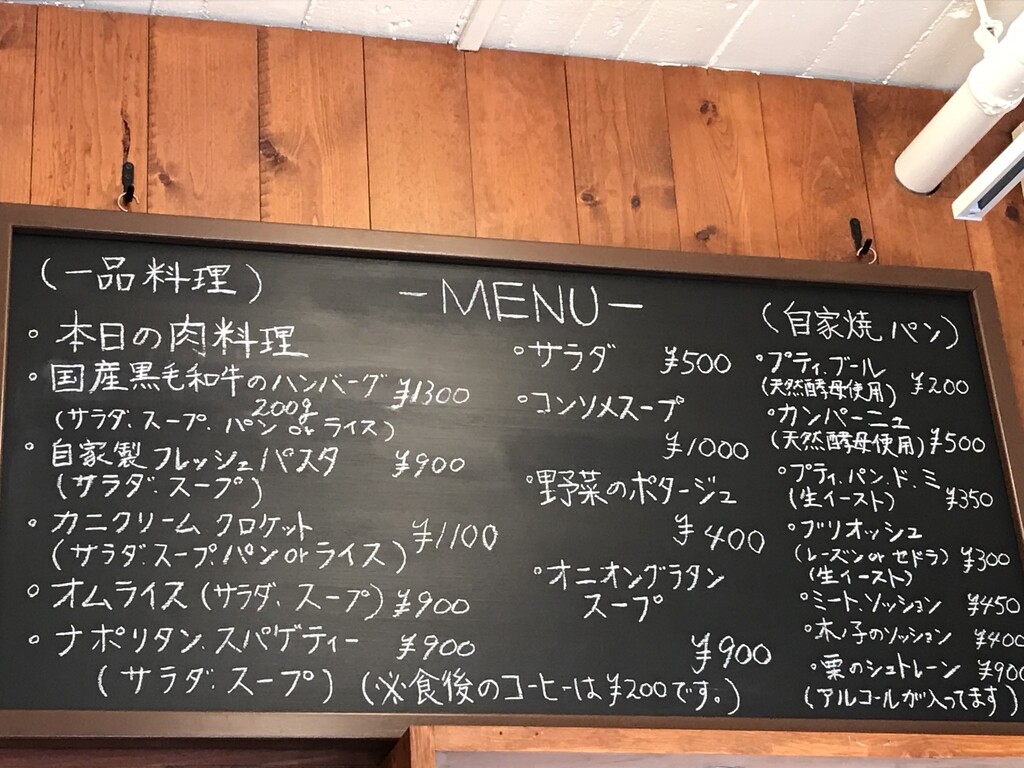 -MENU-
(一品料理)
・本日の肉料理
・国産黒毛和牛のハンバーグ ¥1300
200g
(サラダ、スープ、パン or ライス)
・自家製フレッシュパスタ ¥900
(サラダ、スープ)
・カニクリーム クロケット ¥1100
(サラダ、スープ、パン or ライス)
・オムライス(サラダ、スープ) ¥900
・ナポリタン、スパゲティー ¥900
(サラダ、スープ)
(※食後のコーヒーは¥200です。)
・サラダ ¥500
・コンソメスープ
¥1000
・野菜のポタージュ
¥400
・オニオングラタン
スープ
¥900
(自家焼パン)
・プティ、ブール ¥200
(天然酵母使用)
・カンパーニュ
(天然酵母使用) ¥500
・プティ、パン、ド、ミ
(生イースト) ¥350
・ブリオッシュ
(レーズン or セドラ) ¥300
(生イースト)
・ミート、ソッション ¥450
・木ノ子のソッション ¥400
・栗のシュトレーン ¥900
(アルコールが入ってます)